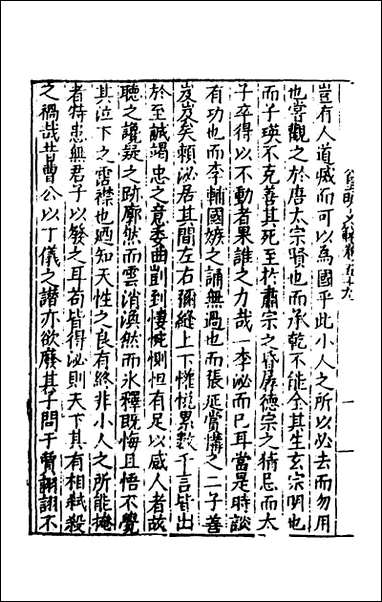 豈有人道臧而可以為國乎此小人之所以必去而勿用
也嘗觀之於唐太宗賢也而承乾不能全其生玄宗明也
而子瑛不克善其死至於肅宗之昏孱德宗之猜忌而太
子卒得以不動者果誰之力哉一李泌而已耳當是時談
有功也而李輔國嫉之誦無過也而張延賞搆之二子善
岌岌矣賴泌居其間左右彌縫上下懽悅累數千言皆出
於至誠竭忠之意委曲剴到悽惋惻怛有足以感人者故
聽之讙疑之跡廓然而雲消渙然而氷釋既悔且悟不覺
其泣下之霑襟也廼知天性之良有終非小人之所能掩
者特患無君子以發之耳苟皆得泌則天下其有相弒殺
之禍哉昔曹公以丁儀之譖亦欲廢其子問于賈詡詡不